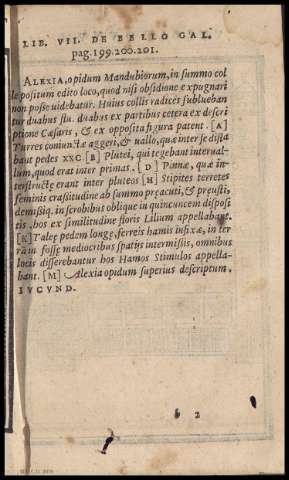 LIB. VII. DE BELLO GAL.
pag. 199. 200. 201.
ALEXIA, opidum Mandubiorum, in summo col
le positum edito loco, quod nisi obsidione expugnari
non posse uidebatur. Huius collis radices subluebant
tur duabus flu. duabus ex partibus cetera ex descri
ptione Cæsaris, & ex opposita figura patent. [A]
Turres coniunctæ aggeri, & uallo, quæ inter se dista
bant pedes XXC. [B] Plutei, qui tegebant interual-
lum, quod erat inter primas. [D] Pinnæ, quæ in-
terstructæ erant inter pluteos [H] Stipites terretes
feminis crassitudine ab summo præacuti, & præusti,
demissiq. in scrobibus oblique in quincuncem disposi
tis, hos ex similitudine floris Lilium appellabant.
[K] Taleæ pedem longæ, ferreis hamis infixæ, in ter
rā in fossæ mediocribus spatijs intermissis, omnibus
locis disserebantur hos Hamos Stimulos appella-
bant. [M] Alexia opidum superius descriptum.
IVCVND.
b 2